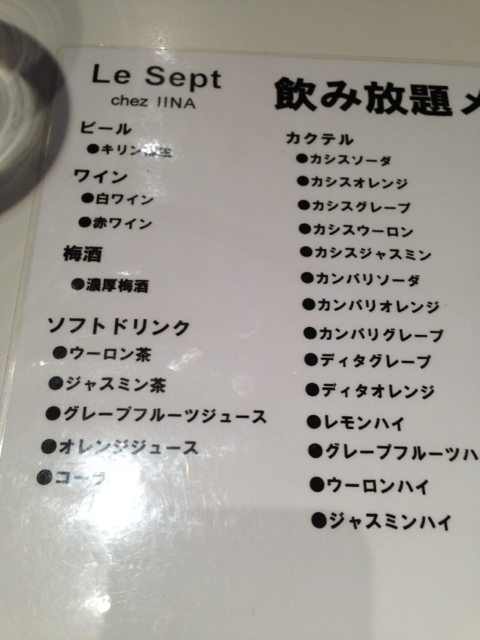 Le Sept
chez IINA
飲み放題メ
ビール
●キリン
ワイン
●白ワイン
●赤ワイン
梅酒
●濃厚梅酒
ソフトドリンク
●ウーロン茶
●ジャスミン茶
●グレープフルーツジュース
●オレンジジュース
●コーラ
カクテル
●カシスソーダ
●カシスオレンジ
●カシスグレープ
●カシスウーロン
●カシスジャスミン
●カンパリソーダ
●カンパリオレンジ
●カンパリグレープ
●ディタグレープ
●ディタオレンジ
●レモンハイ
●グレープフルーツハ
●ウーロンハイ
●ジャスミンハイ